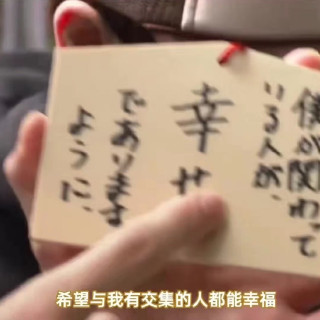 僕が関わって
いる人が、
幸せ
であります
ように、
希望与我有交集的人都能幸福